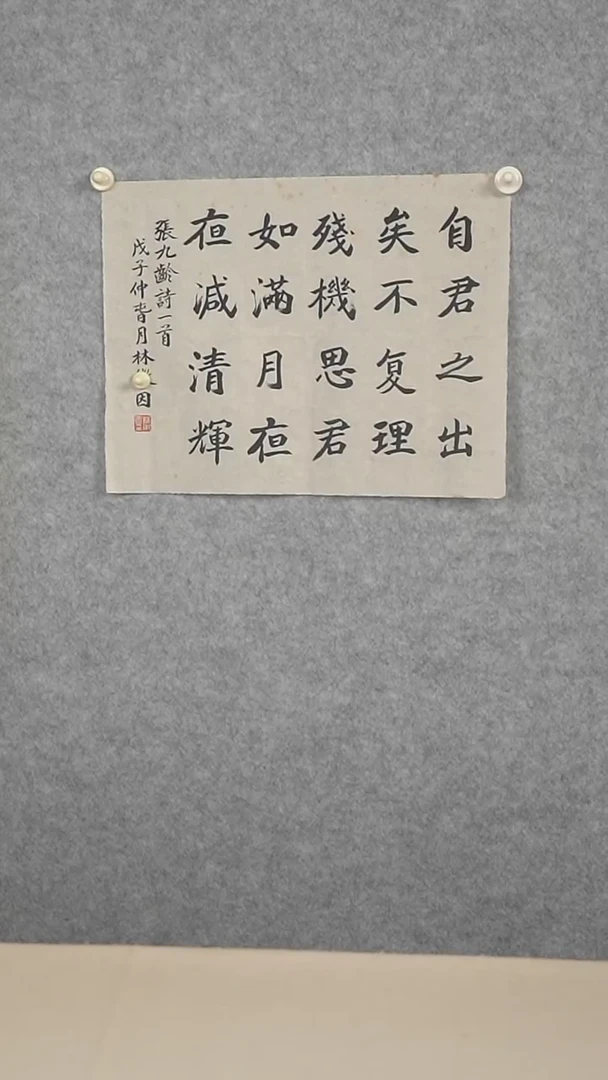 自君之出
矣不复理
殘機思君
如滿月夜
夜減清輝
張九齡詩一首
戊子仲春月林因